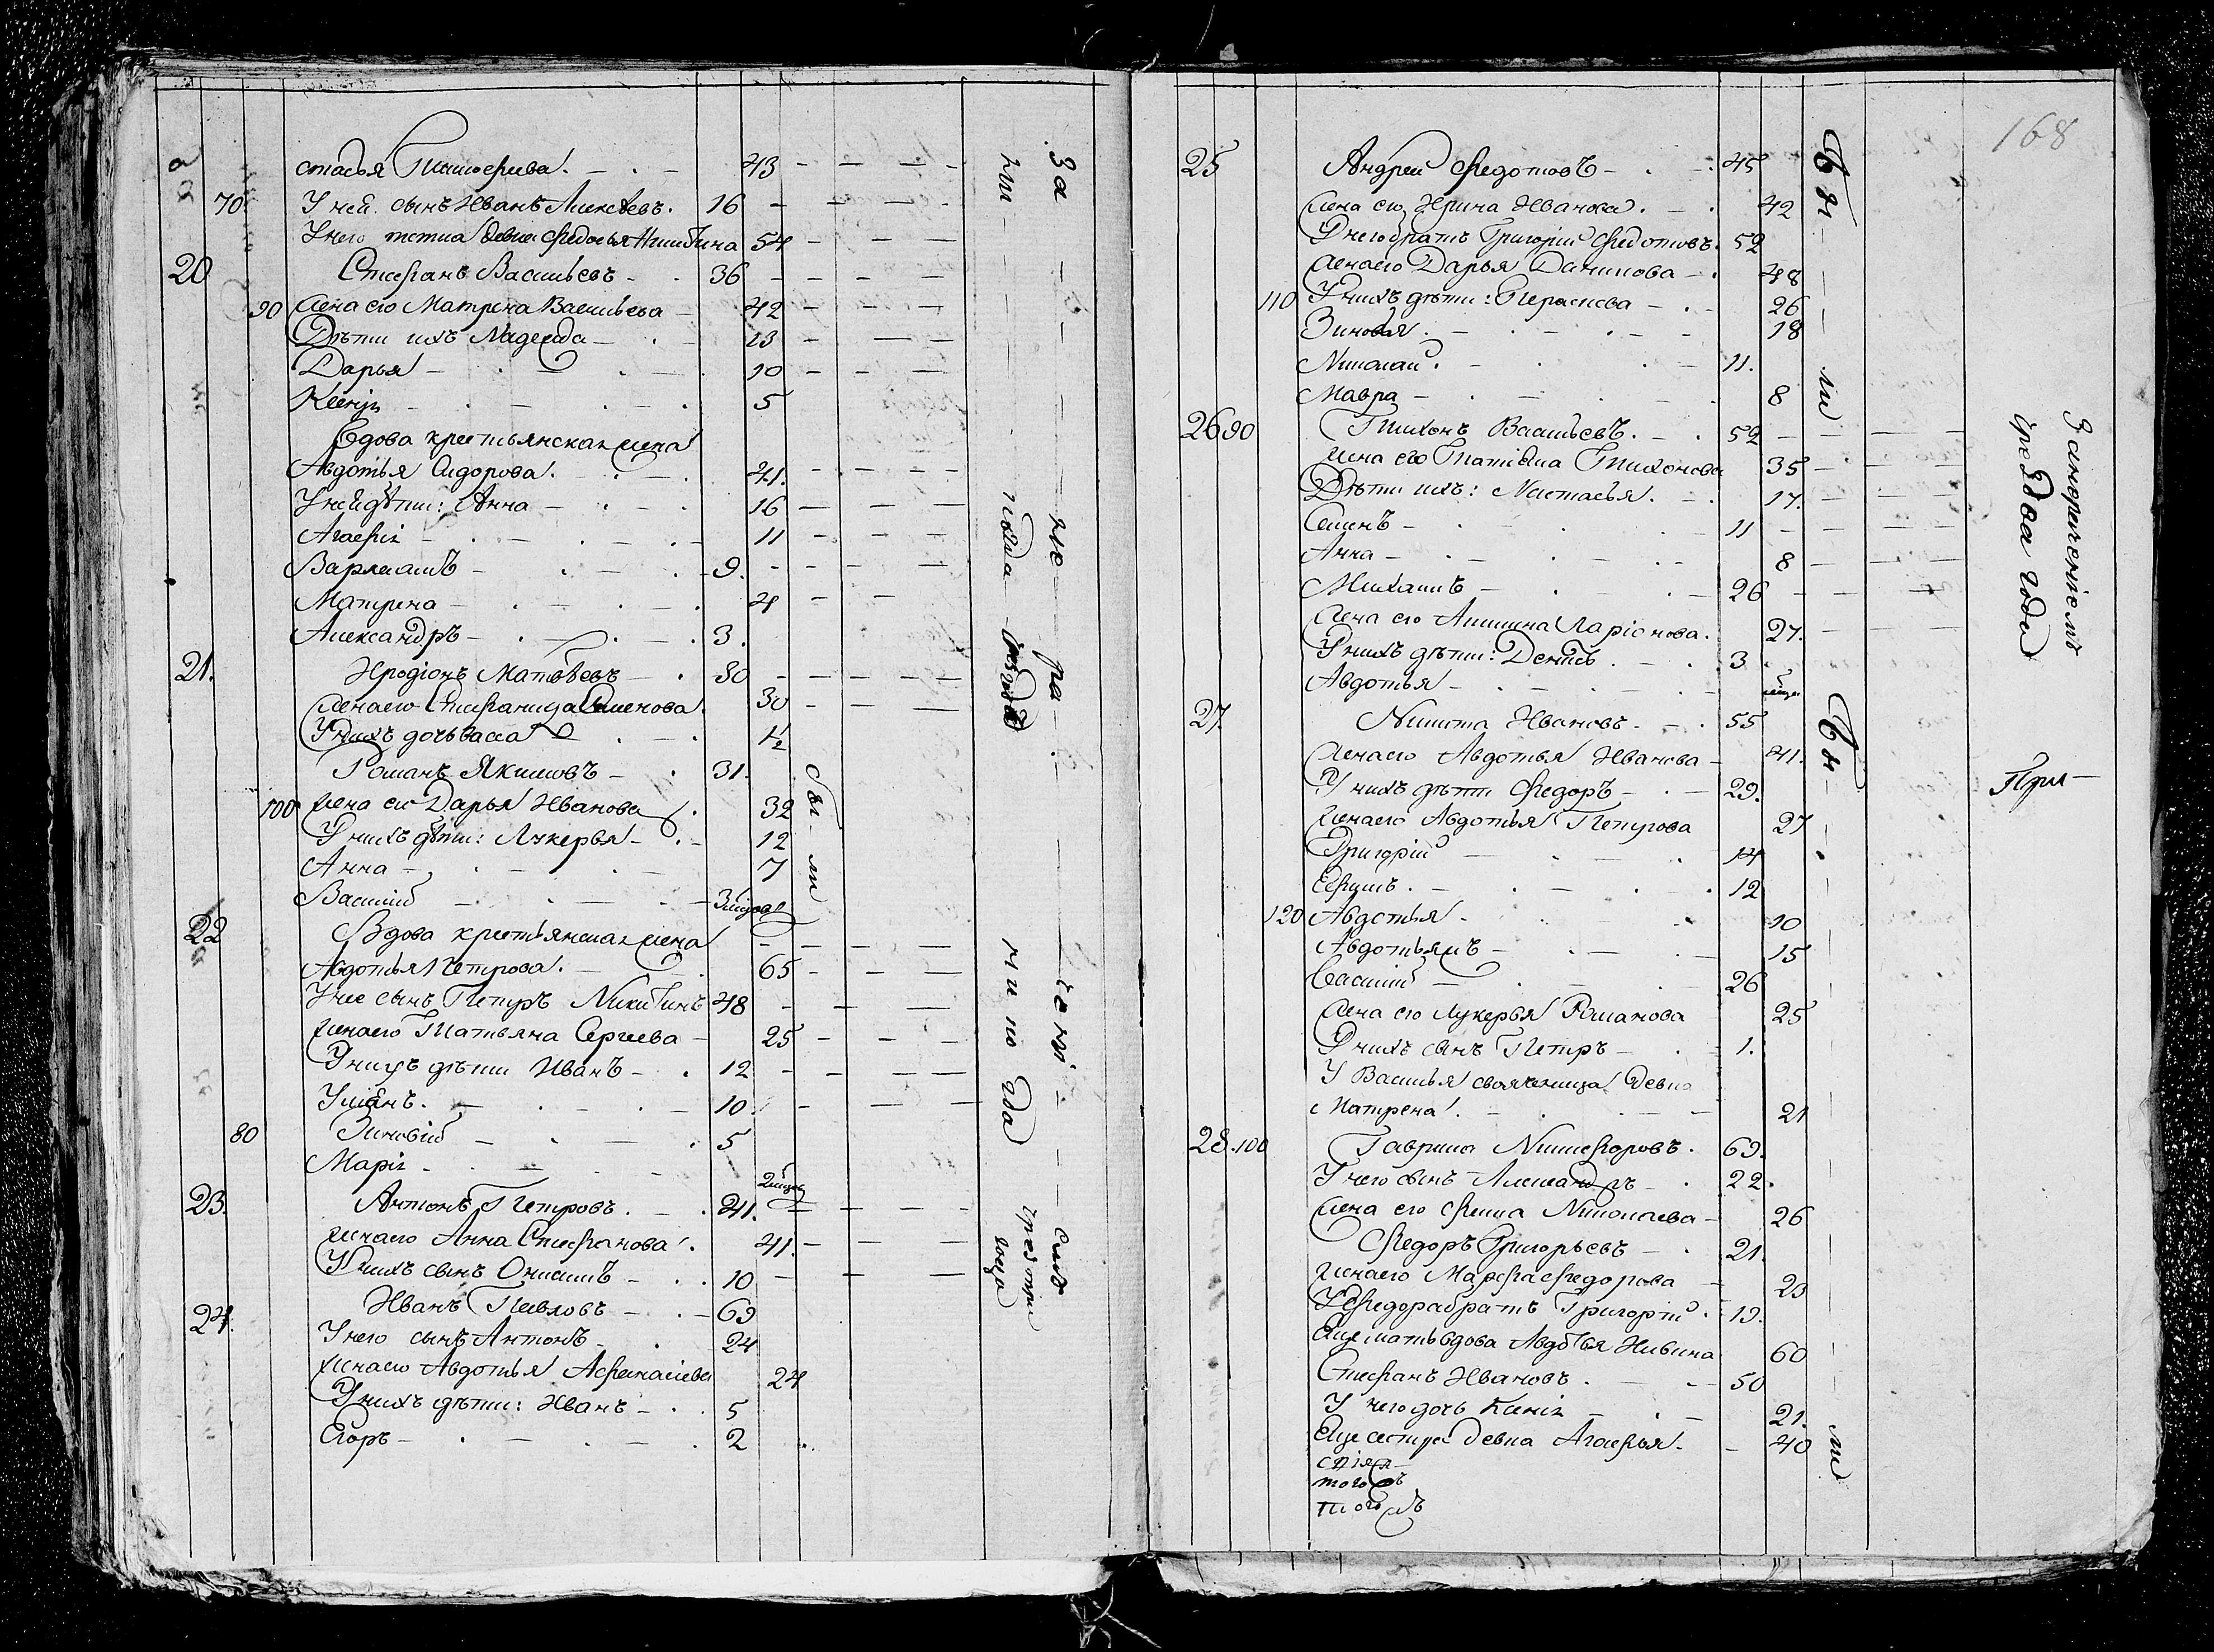 стасья Тимофеева. 43
70. У ней сынъ Иванъ Алексѣевъ. 16
У него тетка девка Федосья Никитина 54
20 Стефанъ Васильевъ 36
90 Жена его Матрена Васильева 42
Дѣти ихъ Надежда 13
Дарья 10
Ксенія 5
Вдова крестьянская жена
Авдотья Сидорова. 41.
У ней дѣти: Анна 16
Агафія 11
Варлаамъ 9.
Матрена 4
Александръ 3.
21. Иродіонъ Матвѣевъ 30
Жена его Стефанида Семенова. 30
У нихъ дочь Васса 1½
Романъ Якимовъ 31.
100 Жена его Дарья Иванова 32
У нихъ дѣти: Лукерья 12
Анна 7
Василий
22 Вдова крестьянская жена
Авдотья Петрова. 65
У нее сынъ Петръ Никитинъ 48
Жена его Татьяна Сергеева 25
У нихъ дѣти Иванъ 12
Ульянъ. 10
80 Зиновій 5
Марія
23. Антонъ Петровъ. 41.
Жена его Анна Стефанова. 41.
У нихъ сынъ Онисимъ 10
24. Иванъ Павловъ 69
У него сынъ Антонъ 24
Жена его Авдотья Афанасіева 24
У нихъ дѣти: Иванъ 5
Егоръ 2
За не ра чені
были
были
168
25 Андрей Федотовъ 45
Жена его Ирина Иванова. 42
У него братъ Григорій Федотовъ. 52
Жена его Дарья Данилова 48
110 У нихъ дѣти: Парасковa 26
Зиновья. 18
Николай. 11.
Мавра 8
26 90 Тихонъ Васильевъ. 52
Жена его Татіана Тихонова 35
Дѣти ихъ: Настасья. 17.
Семенъ 11
Анна 8
Михаилъ 26
Жена его Акилина Ларіонова. 27.
У нихъ дѣти: Денисъ 3
Авдотья
27. Никита Ивановъ. 55
Жена его Авдотья Иванова 41.
У нихъ дѣти Федоръ 29.
Жена его Авдотья Петрова 27
Григорій 14
Ефимъ. 12
120 Авдотья 10
Авдотья жъ 15
Василій 26
Жена его Лукерья Романова 25
У нихъ сынъ Петръ 1.
У Василья свояченица девка
Матрена. 21
28. 100 Гаврила Никифоровъ. 69.
У него сынъ Александръ 22.
Жена его Фекла Николаева 26
Федоръ Григорьевъ 21.
Жена его Марфа Федорова 23
У Федора братъ Григорій 19.
Еще мать вдова Авдотья 60
Стефанъ Ивановъ. 50
У него дочь Ксенія 21.
Еще сестра девка Агафья 40
того жъ
того жъ
Занерачениемъ
чрез два года
При